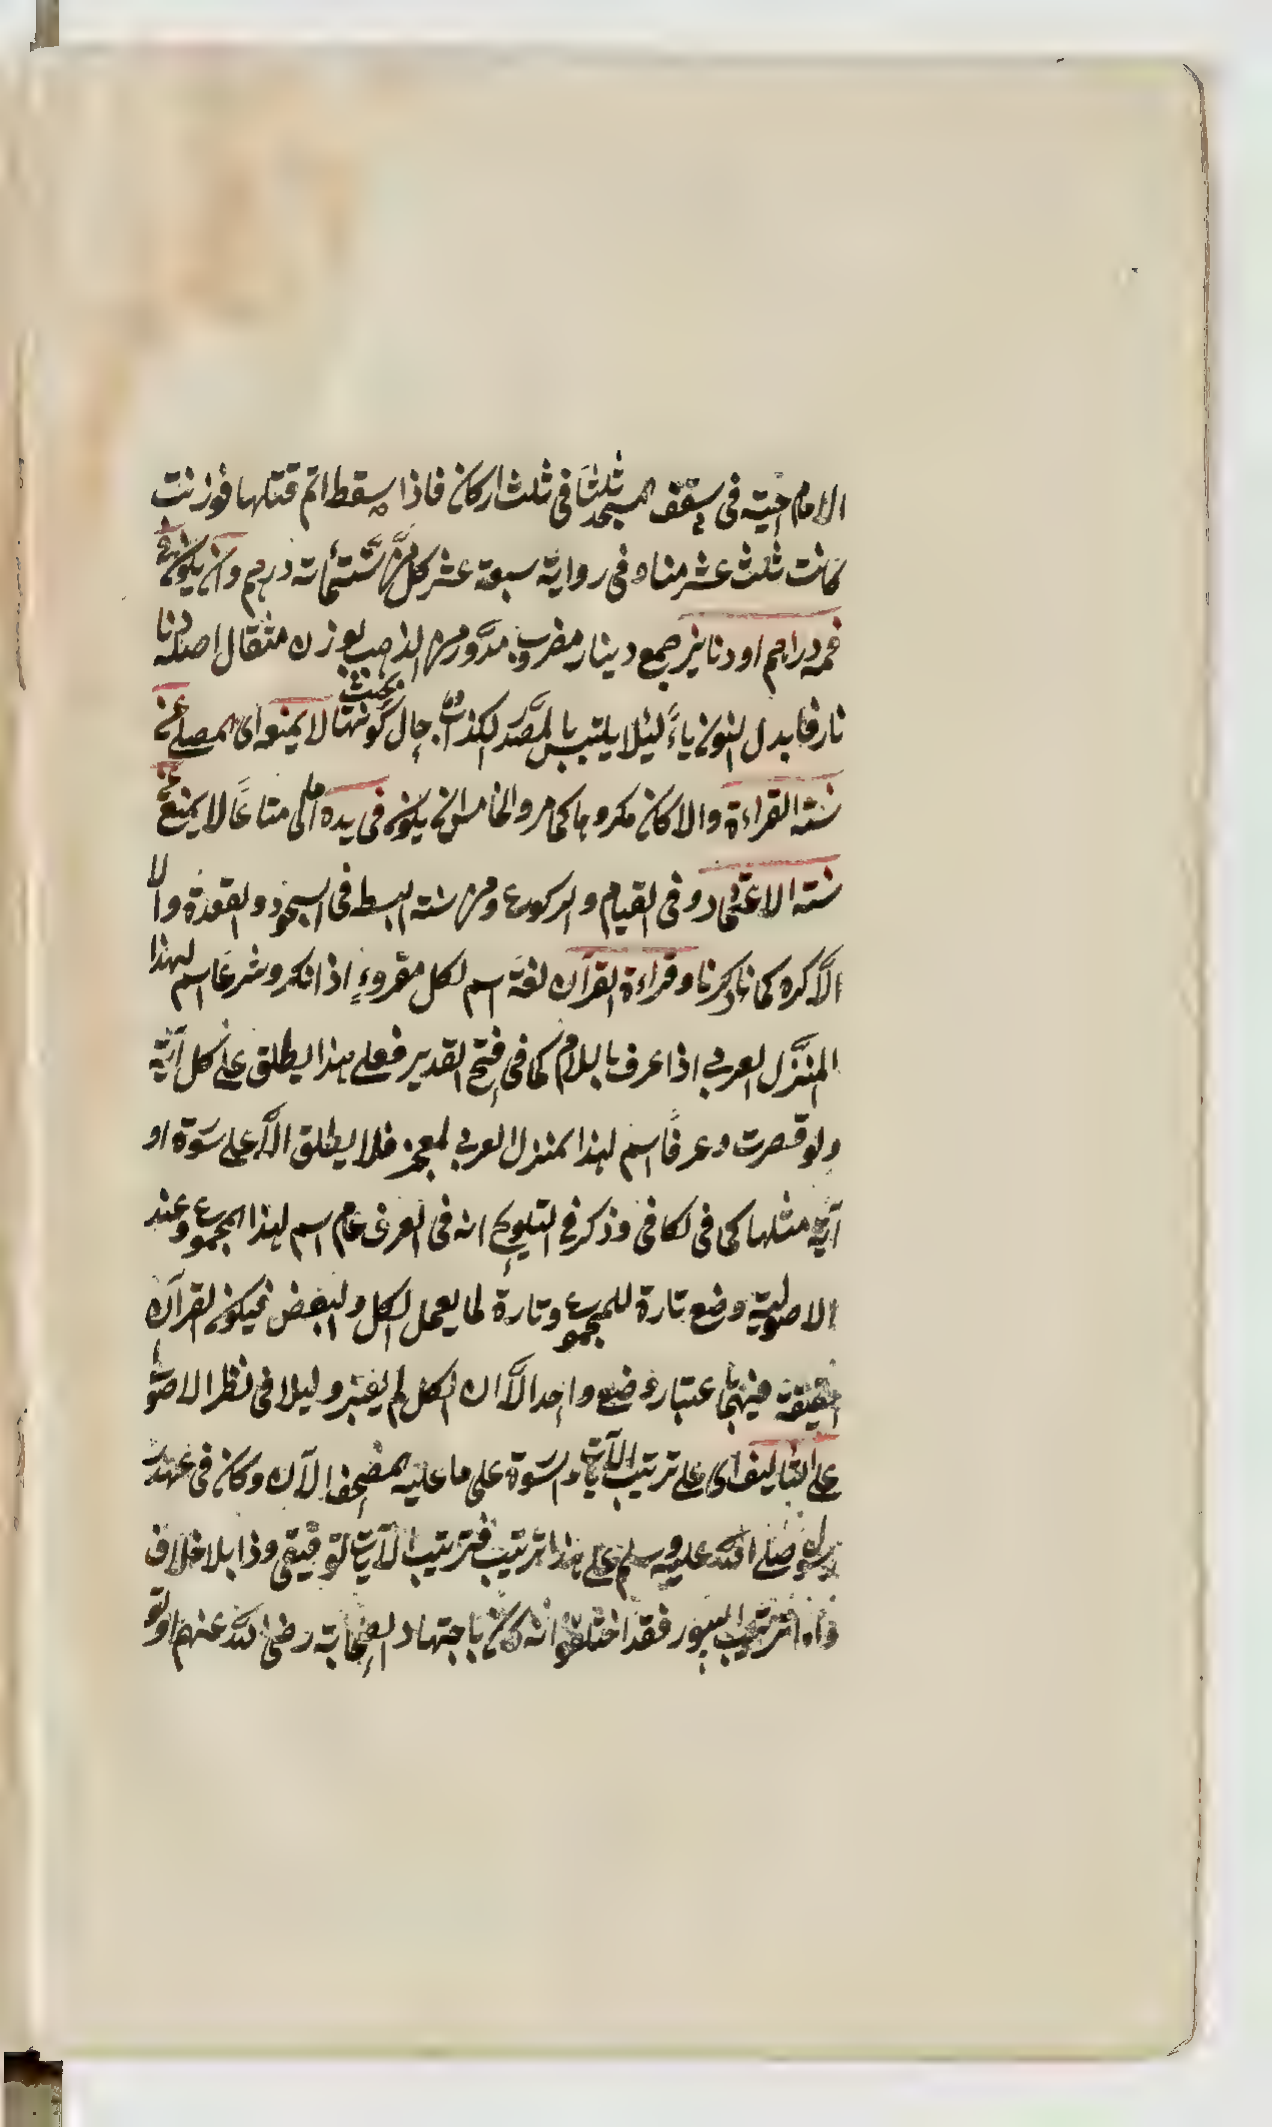 الامام حية في سقف المسجد ثلثا في ثلث اركان فاذا سقط اتم قتلها فوزنت
كانت ثلث عشر مناه في رواية سبعة عشر كل منها ستمائة درهم وان يكون في
فمه دراهم او دنانير جمع دينار مضروب مدور من الذهب بوزن مثقال اصله دنا
نار فابدل النون ياءً لئلا يلتبس بالمصدر ككذاب بحيث لا يمنعه اى المصلي عن
سنة القراءة والا كان مكروها كما مر والخامس ان يكون في يده متاعًا لا يمنع عن
سنة الاعتماد وفي القيام والركوع ومن سنة البسط في السجود والقعدة والا
الا كره كما ذكرنا وقراءة القرآن لغة اسم لكل مقروءٍ اذا نكر وشرعًا اسم لهذا
المنزّل العربي اذا عرف باللام كما في فتح القدير فعلى هذا يطلق على كل آية
ولو قصرت وعرفًا اسم لهذا المنزل العربي المعجز فلا يطلق الا على سورة او
آية مثلها كما في الكافي وذكر في التلويح انه في العرف عام اسم لهذا المجموع وعند
الاصولية وضع تارة للمجموع وتارة لما يعمل الكل والبعض فيكون القرآن
حقيقة فيهما باعتبار وضع واحد الا ان الكل لم يعتبر دليلا في نظر الاصولي
على التأليف اى على ترتيب الآيات والسورة على ما عليه المصحف الآن وكان في عهد
رسول صلى الله عليه وسلم على هذا ترتيب فترتيب الآيات توقيفي وذا بلا خلاف
واما ترتيب السور فقد اختلفوا انه كان باجتهاد الصحابة رضي الله عنهم او تو